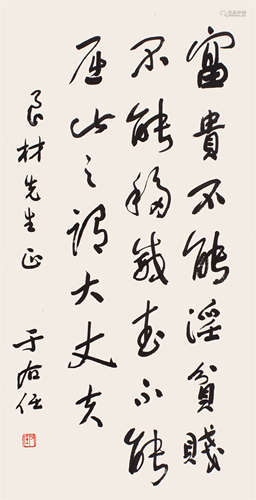 富貴不能淫貧賤
不能移威武不能
屈此之謂大丈夫
良材先生正
于右任